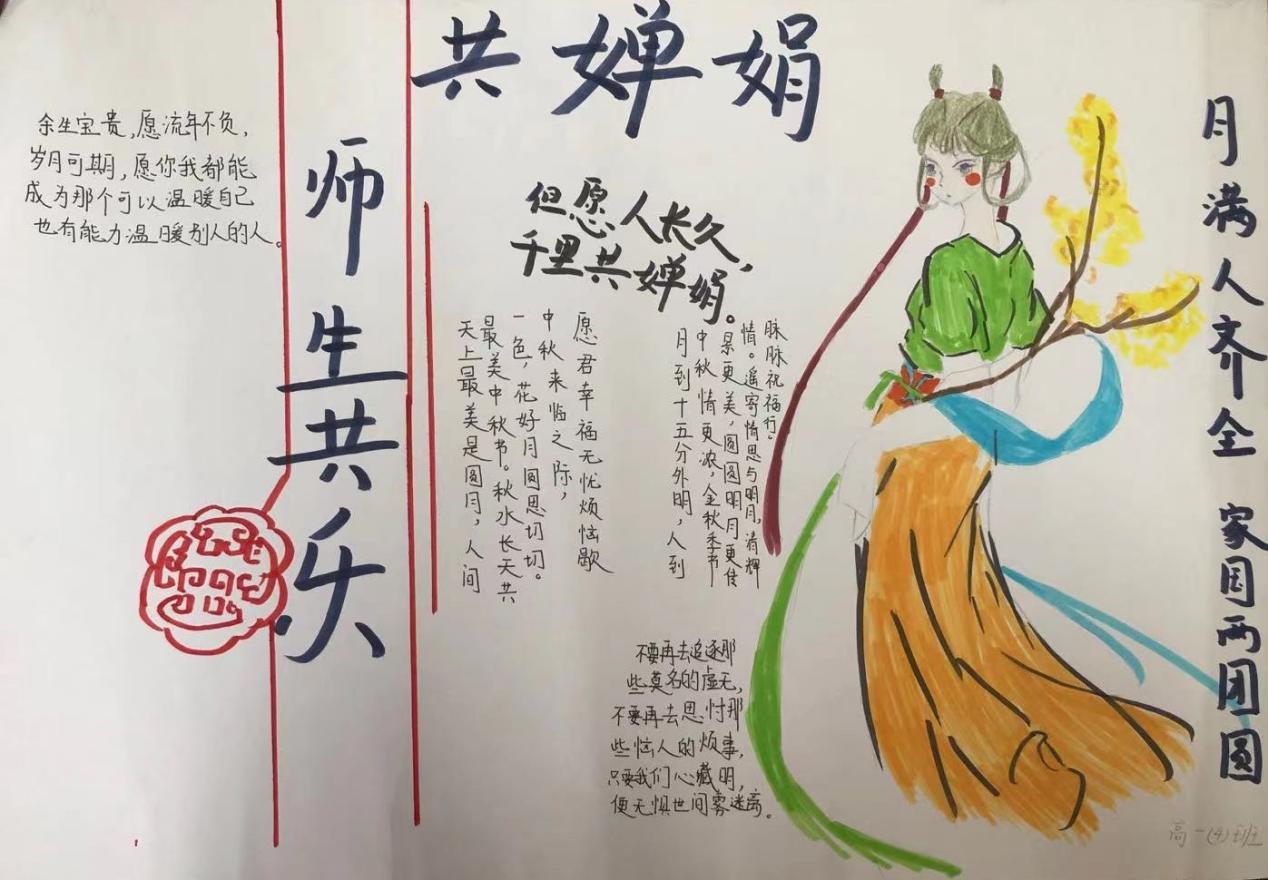 共婵娟
师生共乐
余生宝贵,愿流年不负,
岁月可期,愿你我都能
成为那个可以温暖自己
也有能力温暖别人的人。
但愿人长久,
千里共婵娟。
天上最美是圆月,人间
最美中秋节。秋水长天共
一色,花好月圆思切切。
中秋来临之际,
愿君幸福无忧烦恼歇
月到十五分外明,人到
中秋情更浓,金秋季节
景更美,圆圆明月更传
情。遥寄情思与明月,清辉
脉脉祝福行。
不要再去追逐那
些莫名的虚无,
不要再去思忖那
些恼人的烦事,
只要我们心藏明,
便无惧世间雾迷离。
月满人齐全 家国两团圆
高一(4)班